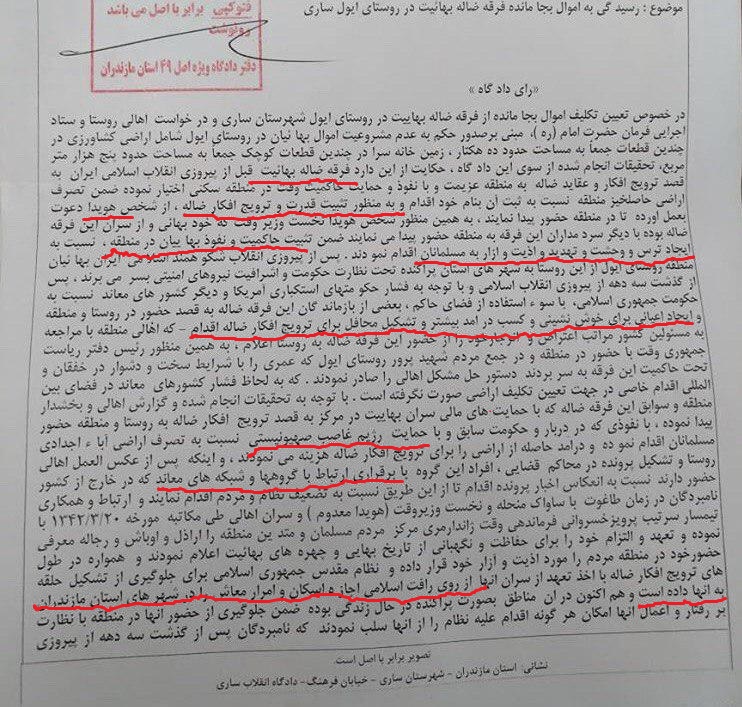 موضوع : رسید گی به اموال بجا مانده فرقه ضاله بهائیت در روستای ایول ساری
فتوکپی برابر با اصل می باشد
رونوشت
دفتر دادگاه ویژه اصل ۴۹ استان مازندران
«رای داد گاه »
در خصوص تعیین تکلیف اموال بجا مانده از فرقه ضاله بهاییت در روستای ایول شهرستان ساری و در خواست اهالی روستا و ستاد
اجرایی فرمان حضرت امام (ره )، مبنی برصدور حکم به عدم مشروعیت اموال بها ئیان در روستای ایول شامل اراضی کشاورزی در
چندین قطعات جمعاً به مساحت حدود ده هکتار ، زمین خانه سرا در چندین قطعات کوچک جمعاً به مساحت حدود پنج هزار متر
مربع، تحقیقات انجام شده از سوی این داد گاه ، حکایت از این دارد فرقه ضاله بهائیت قبل از پیروزی انقلاب اسلامی ایران به
قصد ترویج افکار و عقاید ضاله به منطقه عزیمت و با نفوذ و حمایت حاکمیت وقت در منطقه سکنی اختیار نموده ضمن تصرف
اراضی حاصلخیز منطقه نسبت به ثبت آن بنام خود اقدام و به منظور تثبیت قدرت و ترویج افکار ضاله ، از شخص هویدا دعوت
بعمل اورده تا در منطقه حضور پیدا نمایند ، به همین منظور شخص هویدا نخست وزیر وقت که خود بهائی و از سران این فرقه
ضاله بوده با دیگر سرد مداران این فرقه به منطقه حضور پیدا می نمایند ضمن تثبیت حاکمیت و نفوذ بها ییان در منطقه ، نسبت به
ایجاد ترس و وحشت و تهدید و اذیت و ازار به مسلمانان اقدام نمو دند . پس از پیروزی انقلاب شکو همند اسلامی ایران بها ئیان
منطقه روستای ایول از این روستا به شهر های استان پراکنده تحت نظارت حکومت و اشرافیت نیروهای امنیتی بسر می برند ، پس
از گذشت سه دهه از پیروزی انقلاب اسلامی و با توجه به فشار حکو متهای استکباری آمریکا و دیگر کشور های معاند نسبت به
حکومت جمهوری اسلامی، با سو ء استفاده از فضای حاکم ، بعضی از بازماند گان این فرقه ضاله به قصد حضور در روستا و منطقه
و ایجاد اعیانی برای خوش نشینی و کسب در امد بیشتر و تشکیل محافل برای ترویج افکار ضاله اقدام – که اهالی منطقه با مراجعه
به مسئولین کشور مراتب اعتراض و انزجار خود را از حضور این فرقه ضاله به روستا اعلام ، به همین منظور رئیس دفتر ریاست
جمهوری وقت با حضور در منطقه و در جمع مردم شهید پرور روستای ایول که عمری را با شرایط سخت و دشوار در خفقان و
تحت حاکمیت این فرقه به سر بردند دستور حل مشکل اهالی را صادر نمودند . که به لحاظ فشار کشورهای معاند در فضای بین
المللی اقدام خاصی در جهت تعیین تکلیف اراضی صورت نگرفته است . با توجه به تحقیقات انجام شده و گزارش اهالی و بخشدار
منطقه و سوابق این فرقه ضاله که با حمایت های مالی سران بهاییت در مرکز به قصد ترویج افکار ضاله به روستا و منطقه حضور
پیدا نموده ، با نفوذی که در دربار و حکومت سابق و با حمایت رژیم غاصب صهیونیستی نسبت به تصرف اراضی آبا ء اجدادی
مسلمانان اقدام نمو ده و درامد حاصله از اراضی را برای ترویج افکار ضاله هزینه می نمودند ، و اینکه پس از عکس العمل اهالی
روستا و تشکیل پرونده در محاکم قضایی ، افراد این گروه با برقراری ارتباط با گروهها و شبکه های معاند که در خارج از کشور
حضور دارند نسبت به انعکاس اخبار پرونده اقدام تا از این طریق نسبت به تضعیف نظام و مردم اقدام نمایند و ارتباط و همکاری
نامبردگان در زمان طاغوت با ساواک منحله و نخست وزیروقت (هویدا معدوم ) و سران اهالی طی مکاتبه مورخه ۱۳۴۲/۳/۲۰ با
تیمسار سرتیپ پرویزخسروانی فرماندهی وقت ژاندارمری مرکز مردم مسلمان و متد ین منطقه را اراذل و اوباش و رجاله معرفی
نموده و تعهد و التزام خود را برای حفاظت و نگهبانی از تاریخ بهایی و چهره های بهائیت اعلام نمودند و همواره در طول
حضورخود در منطقه مردم را مورد اذیت و ازار خود قرار داده و نظام مقدس جمهوری اسلامی برای جلوگیری از تشکیل حلقه
های ترویج افکار ضاله با اخذ تعهد از سران انها از روی رافت اسلامی اجازه اسکان و امرار معاش را در شهر های استان مازندران
به انها داده است و هم اکنون در ان مناطق بصورت پراکنده در حال زندگی بوده ضمن جلوگیری از حضور انها در منطقه با نظارت
بر رفتار و اعمال انها امکان هر گونه اقدام علیه نظام را از انها سلب نمودند که نامبردگان پس از گذشت سه دهه از پیروزی
تصویر برابر با اصل است.
نشانی: استان مازندران – شهرستان ساری – خیابان فرهنگ – دادگاه انقلاب ساری